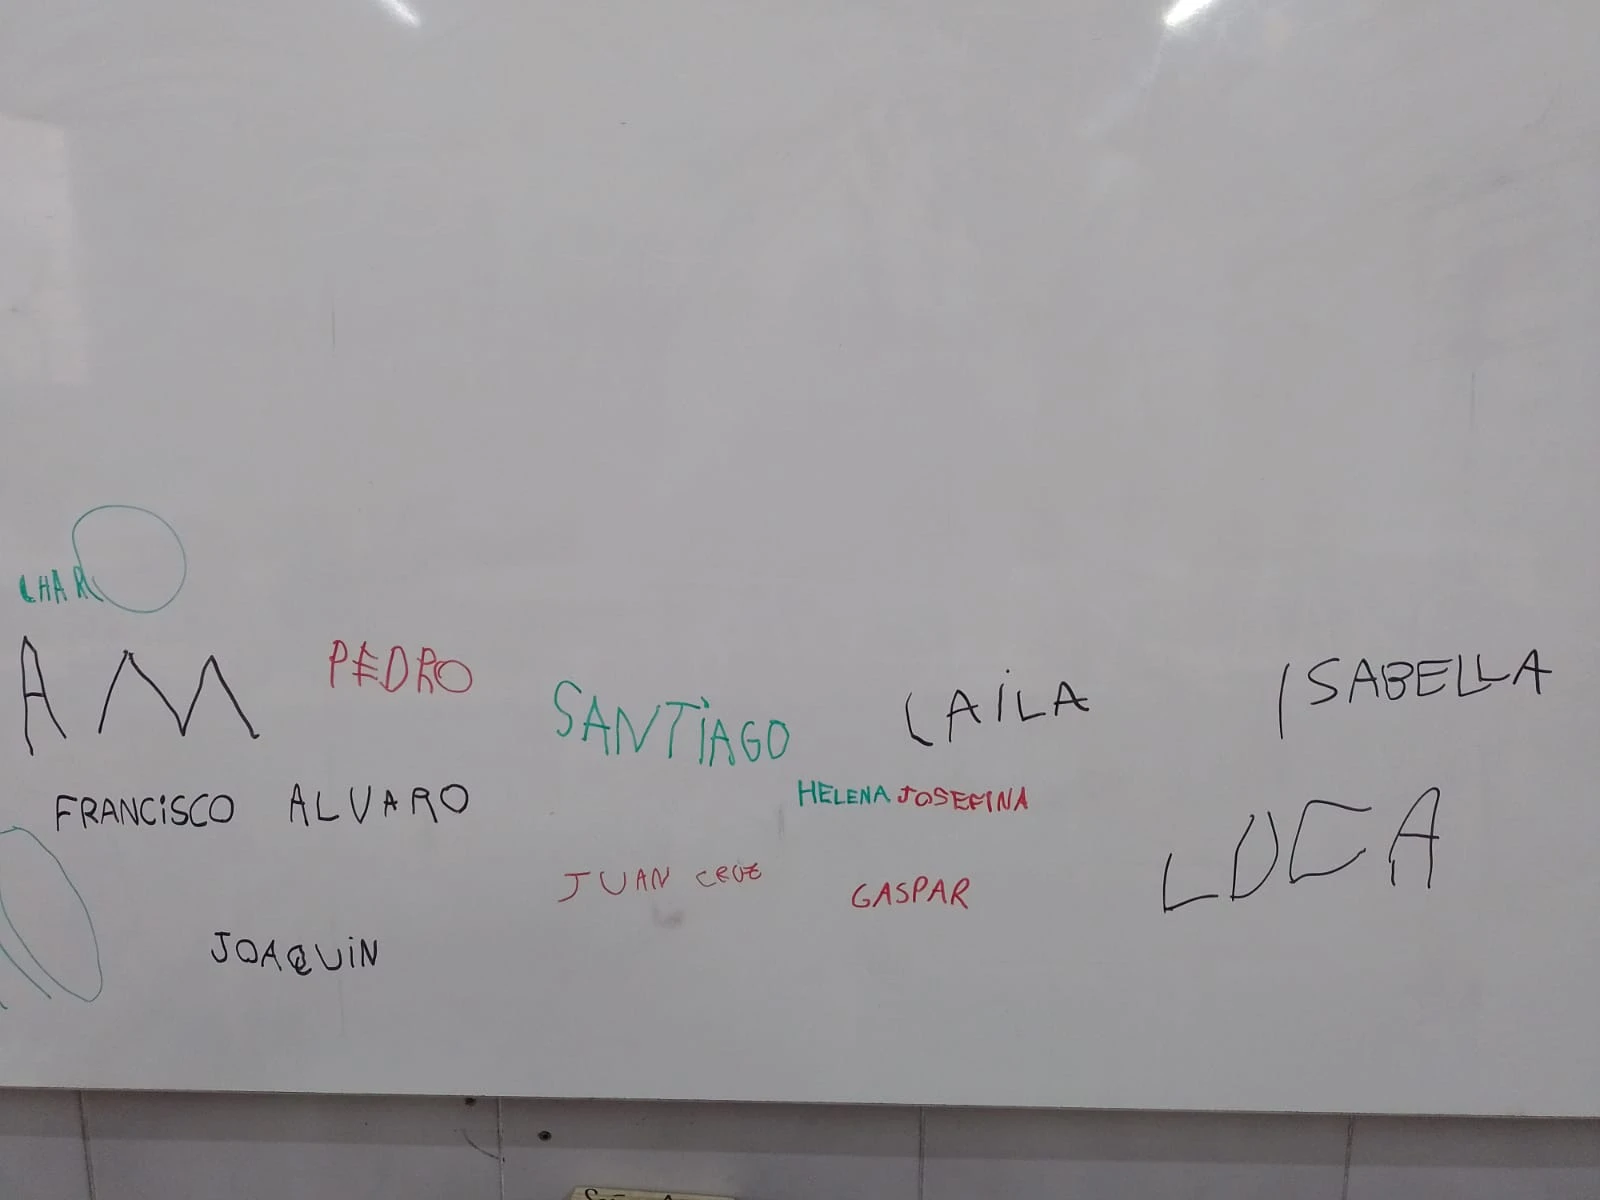 CHARO
AM PEDRO SANTIAGO LAILA ISABELLA
FRANCISCO ALVARO HELENA JOSEFINA LUCA
JUAN CRUZ GASPAR
JOAQUIN